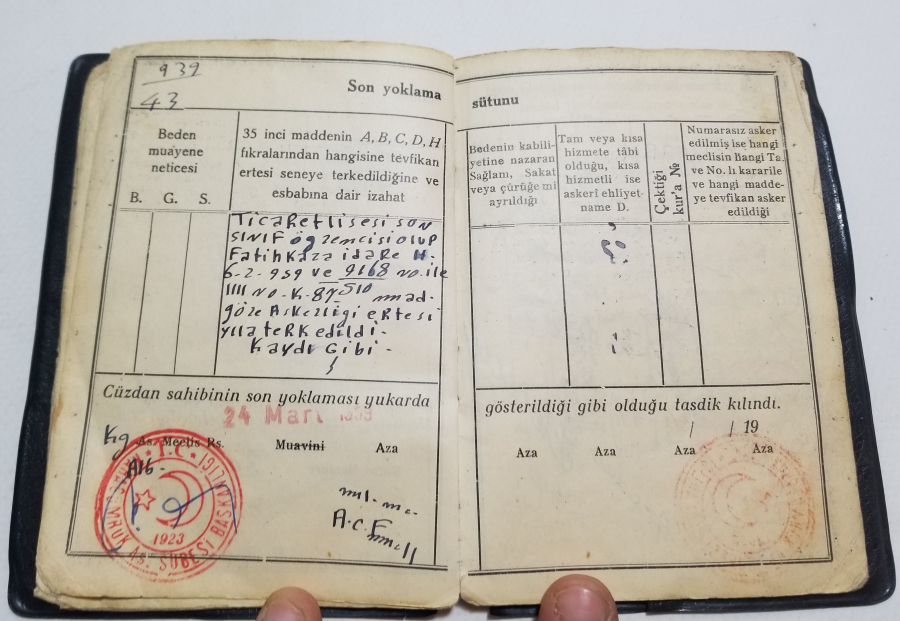 939
43
Son yoklama
Beden
muayene
neticesi
B. G. S.
35 inci maddenin A, B, C, D, H
fıkralarından hangisine tevfikan
ertesi seneye terkedildiğine ve
esbabına dair izahat
Ticaret lisesi son
sınıf öğrencisi olup
Fatih kaza idare H.
6-2-959 ve 9168 no. ile
1111 no. K. mad.
göre Askerliği ertesi
yıla terk edildi.
Kaydı Gibi.
Cüzdan sahibinin son yoklaması yukarda
24 Mart
As. Meclis Rs. Muavini Aza
T.C.
1923
AS. ŞUBESİ BAŞKANLIĞI
A.C.F
sütunu
Bedenin kabili-
yetine nazaran
Sağlam, Sakat
veya çürüğe mi
ayrıldığı
Tam veya kısa
hizmete tâbi
olduğu, kısa
hizmetli ise
askerî ehliyet-
name D.
Çektiği
kur'a №
Numarasız asker
edilmiş ise hangi
meclisin hangi Ta.
ve No. lı kararile
ve hangi madde-
ye tevfikan asker
edildiği
gösterildiği gibi olduğu tasdik kılındı.
/ / 19
Aza Aza Aza Aza